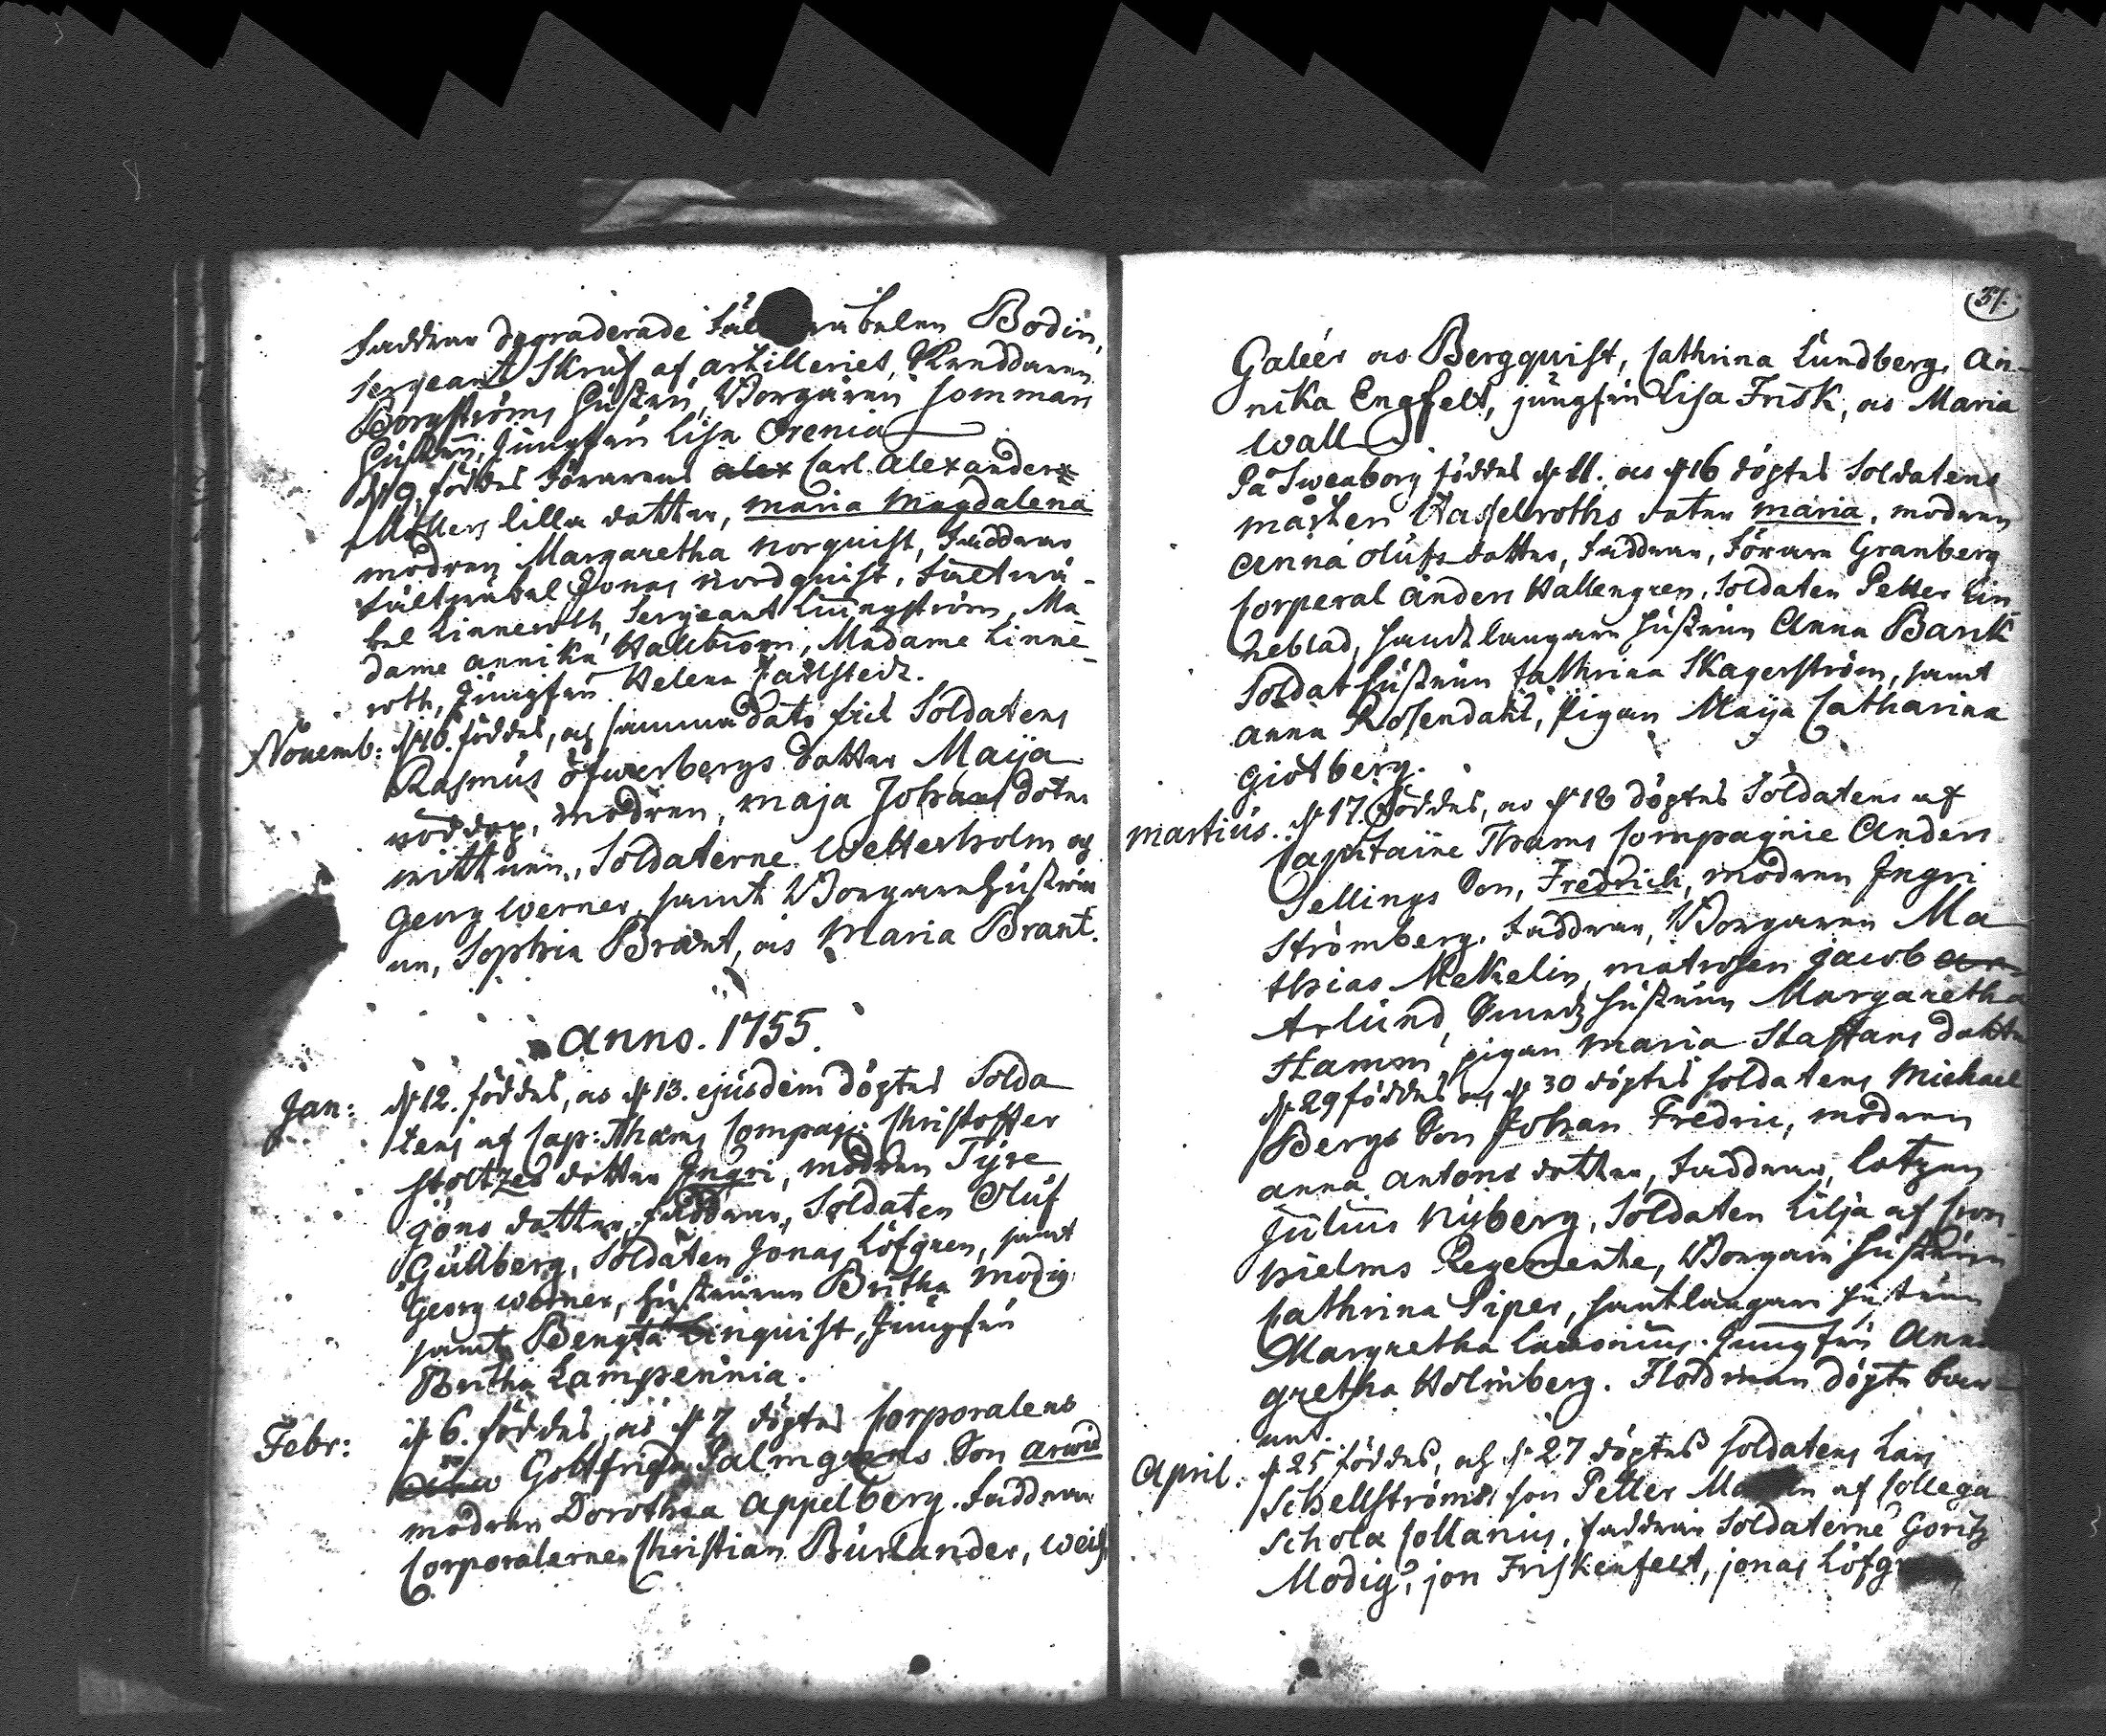 Faddrar degraderade Bodin,
sergeant Skruf af artilleriet, Skräddaren
Borgströms hustru, Borgaren Somman
hustru, Jungfru Lisa Orenia
d 19. föddes Förarens alex Carl Alexander
Möllers lilla dotter, maria Magdalena
modren Margaretha Norquist, Faddrar
fältwäbel Jonas Nordquist, Fältwä-
bel Linneroth, Sergeant Liungström, Ma
dame Annika Hallbiorn, Madame Linne-
roth, Jungfru Helena
Novemb: d 10. föddes, och samma dato fick Soldatens
Rasmus öfwerbergs dotter Maija
nöddop, modren, maja Johans doter
wittnen, Soldaterne Wetterholm och
Georg Werner, samt Borgare hustrur
na, Sophia Brant, och Maria Brant.
anno. 1755.
Jan: d 12. föddes, och d 13. ejusdem döptes Solda
tens af Cap: Thams Compag: Christoffer
Stoltzes dotter Ingri, modren
Jöns dotter, faddrar, Soldaten Oluf
Gullberg, Soldaten Jonas Löfgren, samt
Georg Werner, hustrurna Britha Modig,
samt Bengta Linquist, Jungfru
Britha Lampennia.
Febr: d 6. föddes, och d 7 döptes Corporalens
Gottfried Palmgrens Son arwid
modren Dorothea Appelberg. Faddrar
Corporalerne Christian Burlander,
37.
Galeér och Bergquist, Cathrina Lundberg, An-
nika Engfelt, jungfru Lisa Frisk, och Maria
Wall
På Sweaborg föddes d 11. och d 16 döptes Soldatens
mårten Hasselroths doter maria, modren
Anna Olufs dotter, Faddrar, Förare Granberg
Corperal Anders Hallengren, Soldaten Petter Lin
neblad, handtlangare hustrun Anna Bank
Soldat hustrun Cathrina Skagerström, samt
anna Rosendahl, Pigan Maija Catharina
Giötberg.
Martius. d 17. föddes, och d 18 döptes Soldatens af
Capitaine Thams Compagnie Anders
Sellings Son, Fredrich, modren Ingri
Strömberg, Faddrar, Borgaren Ma
thias Mekelin, matrosen Jacob
Arlund, Smedz hustrun Margaretha
Hamm, pigan maria Staffans dotter
d 29 föddes och d 30 döptes soldatens Michael
Bergs Son Johan Fredric, modren
anna Antons dotter, Faddrar, Lotzen
Julius Nyberg, Soldaten Lilja af Cron
hielms Regemente, Borgare hustrun
Cathrina Piper, hantlangare hustrun
Margretha Jungfru Anna
gretha Holmberg. Flodman döpte bar-
net.
April. d 25 föddes, och d 27 döptes soldatens Lars
Schellströms son Petter af Collega
Schola Collanius, faddrar Soldaterne Goritz
Modig, jon Friskenfelt, jonas